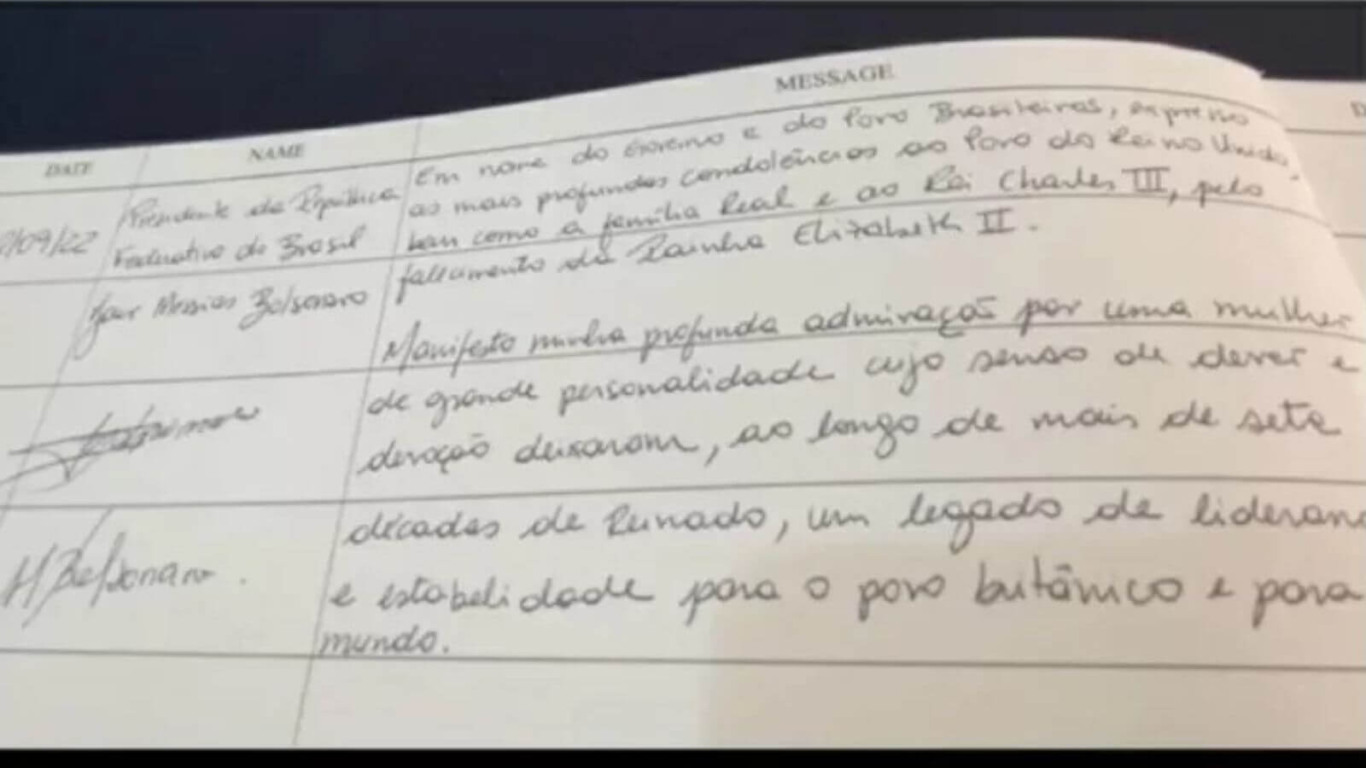 DATE NAME MESSAGE
/09/22 Presidente da República Federativa do Brasil
Jair Messias Bolsonaro
Bolsonaro.
Em nome do Governo e do Povo Brasileiros, expresso
as mais profundas condolências ao Povo do Reino Unido,
bem como à família Real e ao Rei Charles III, pelo
falecimento da Rainha Elizabeth II.
Manifesto minha profunda admiração por uma mulher
de grande personalidade cujo senso de dever e
devoção deixaram, ao longo de mais de sete
décadas de Reinado, um legado de lideran
e estabelidade para o povo britânico e para
mundo.